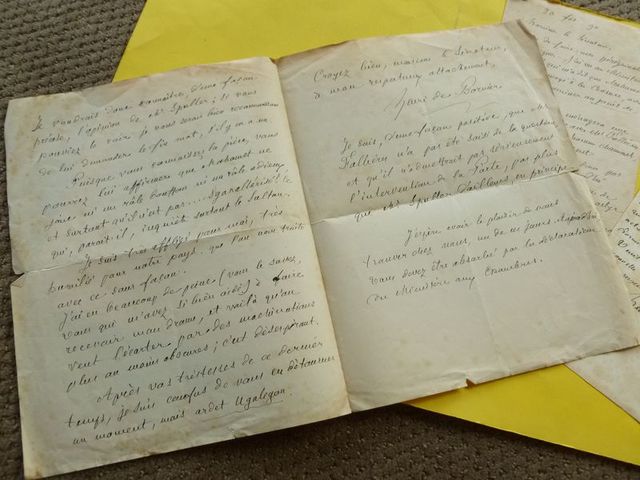 Je voudrais donc connaître, d'une façon
précise, l'opinion de Mr Spuller; si vous
pouviez le voir, je vous serais bien reconnaissant
de lui demander le fin mot, s'il y en a un.
Puisque vous connaissez la pièce, vous
pourrez lui affirmer que Mahomet ne
joue ni un rôle bouffon ni un rôle odieux,
et surtout qu'il n'est pas... Sganarellisé! Ce
qui, paraît-il, inquiète surtout le Sultan.
Je suis très affligé pour moi, très
humilié pour notre pays, que l'on nous traite
avec ce sans façon.
J'ai eu beaucoup de peine (vous le savez,
vous qui m'avez si bien aidé) à faire
recevoir mon drame, et voilà qu'on
veut l'écarter par des machinations
plus ou moins obscures; c'est désespérant.
Après vos tristesses de ce dernier
temps, je suis confus de vous en détourner
un moment, mais ardet Ugalegon.
Croyez bien, monsieur le Sénateur,
à mon respectueux attachement,
Henri de Bornier
Je suis, d'une façon positive, que Mr
Fallières n'a pas été saisi de la question
et qu'il n'admettrait pas sérieusement
l'intervention de la Porte, pas plus
que Mr Spuller d'ailleurs, en principe.
J'espère avoir le plaisir de vous
trouver chez vous, un de ces jours. Aujourd'hui
vous devez être absorbé par la déclaration
du Ministère aux Chambres.
20 fév 90
Monsieur le Sénateur,